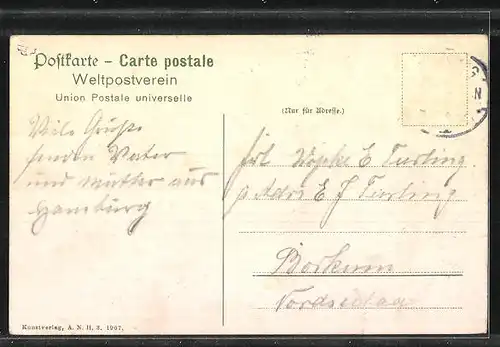 Postkarte – Carte postale
Weltpostverein
Union Postale universelle
(Nur für Adresse.)
Viele Grüße
senden Vater
und Mutter aus
Hamburg
Frl. E Turling
p Adr. E J Turling
Borkum
Kunstverlag, A. N. H. 3. 1907.